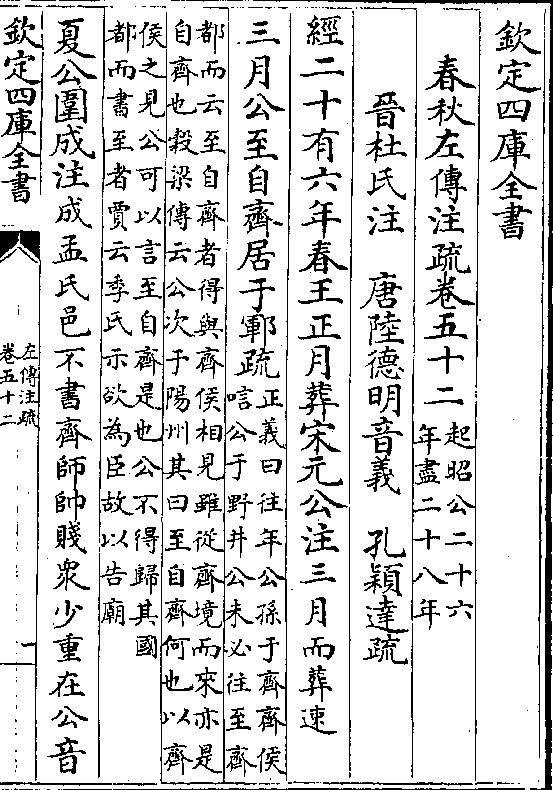 欽定四庫全書
春秋左傳注疏卷五十二
起昭公二十六
年盡二十八年
晉杜氏注　唐陸德明音義　孔穎達疏
經二十有六年春王正月葬宋元公注三月而葬速
三月公至自齊居于鄆疏
正義曰往年公孫于齊齊侯
唁公于野井公未必往至齊
都而云至自齊者得與齊侯相見雖從齊境而來亦是
自齊也穀梁傳云公次于陽州其曰至自齊何也以齊
侯之見公可以言至自齊是也公不得歸其國
都而書至者賈云季氏示欲為臣故以告廟
夏公圍成注成孟氏邑不書齊師帥賤衆少重在公音
欽定四庫全書
左傳注疏
卷五十二
一